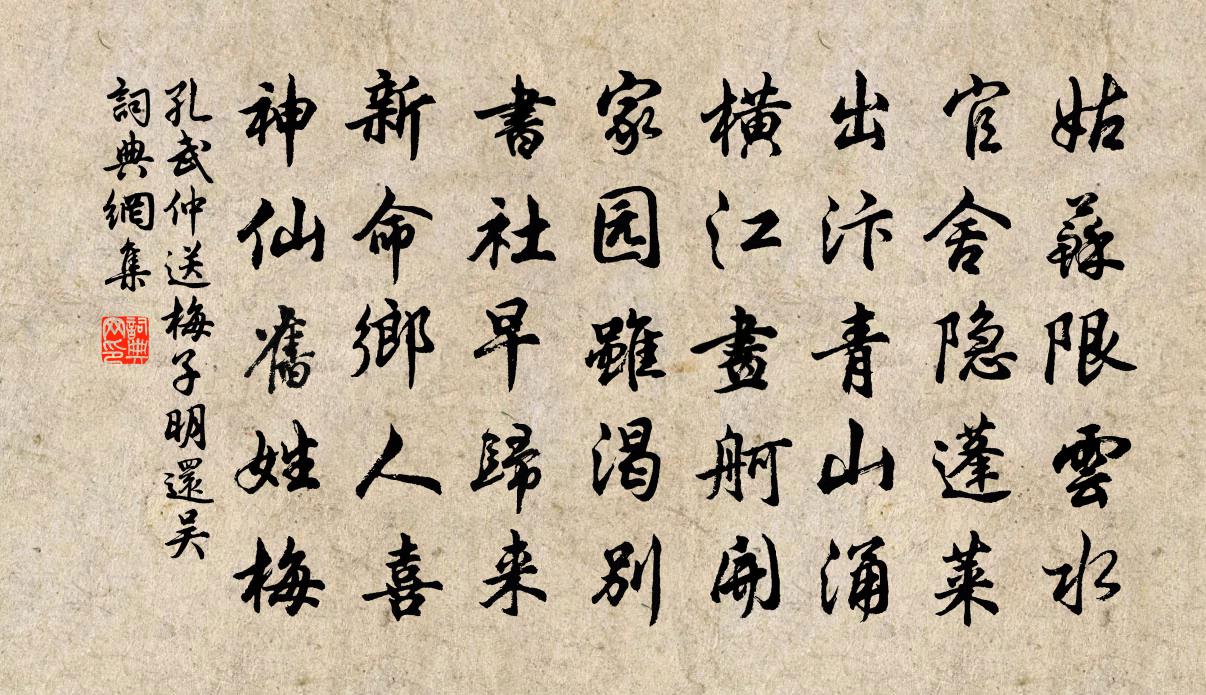 姑蘇限雲水
官舍隐蓬莱
出汴青山涌
横江畫舸開
家园雖渴别
書社早歸来
新命鄉人喜
神仙舊姓梅
孔武仲送梅子明還吴
詞典網集
詞典網印